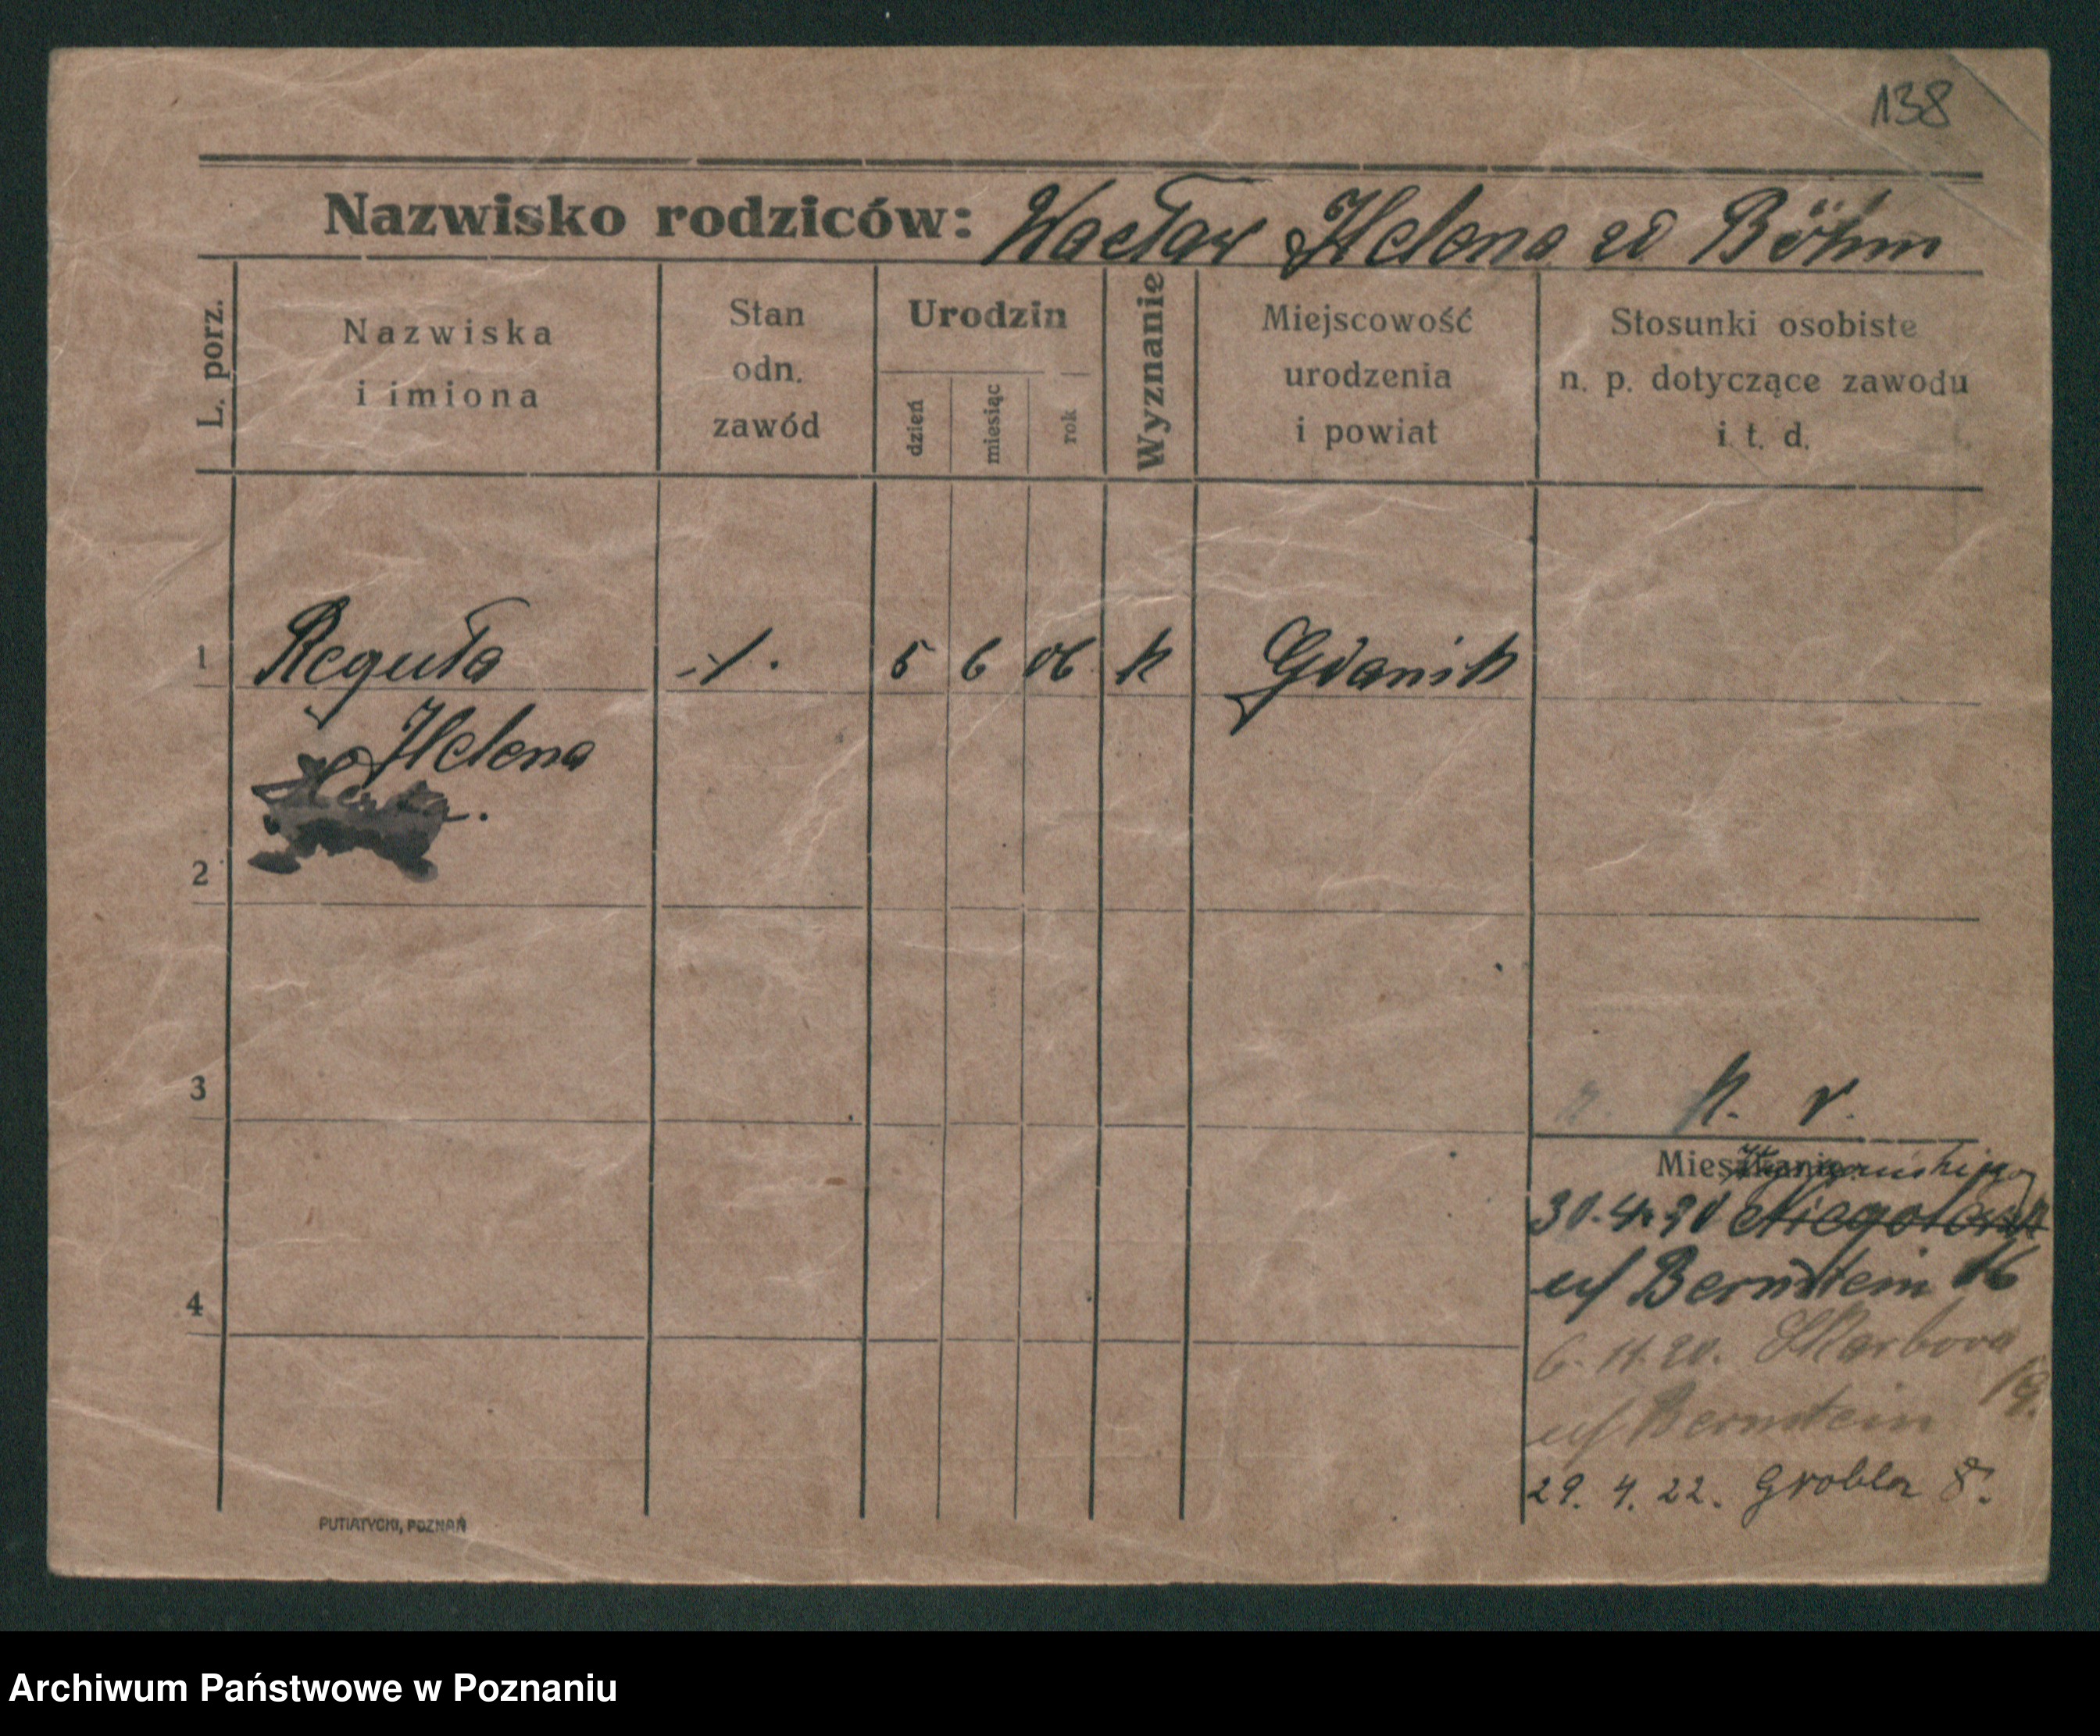 138
Nazwisko rodziców: Wacław Helena zd Böhm
L. porz.
Nazwiska
i imiona
Stan
odn.
zawód
Urodzin
dzień
miesiąc
rok
Wyznanie
Miejscowość
urodzenia
i powiat
Stosunki osobiste
n. p. dotyczące zawodu
i t. d.
1 Reguła -/. 5 6 06 k Gdańsk
Helena
2
3
k. v.
Mieszkanie
30.4.20
u/ Bernstein 16
4
6.11.20. Skarbova
19.
u/ Bernstein
29. 4. 22. Grobla 8.
PUTIATYCKI, POZNAŃ
Archiwum Państwowe w Poznaniu